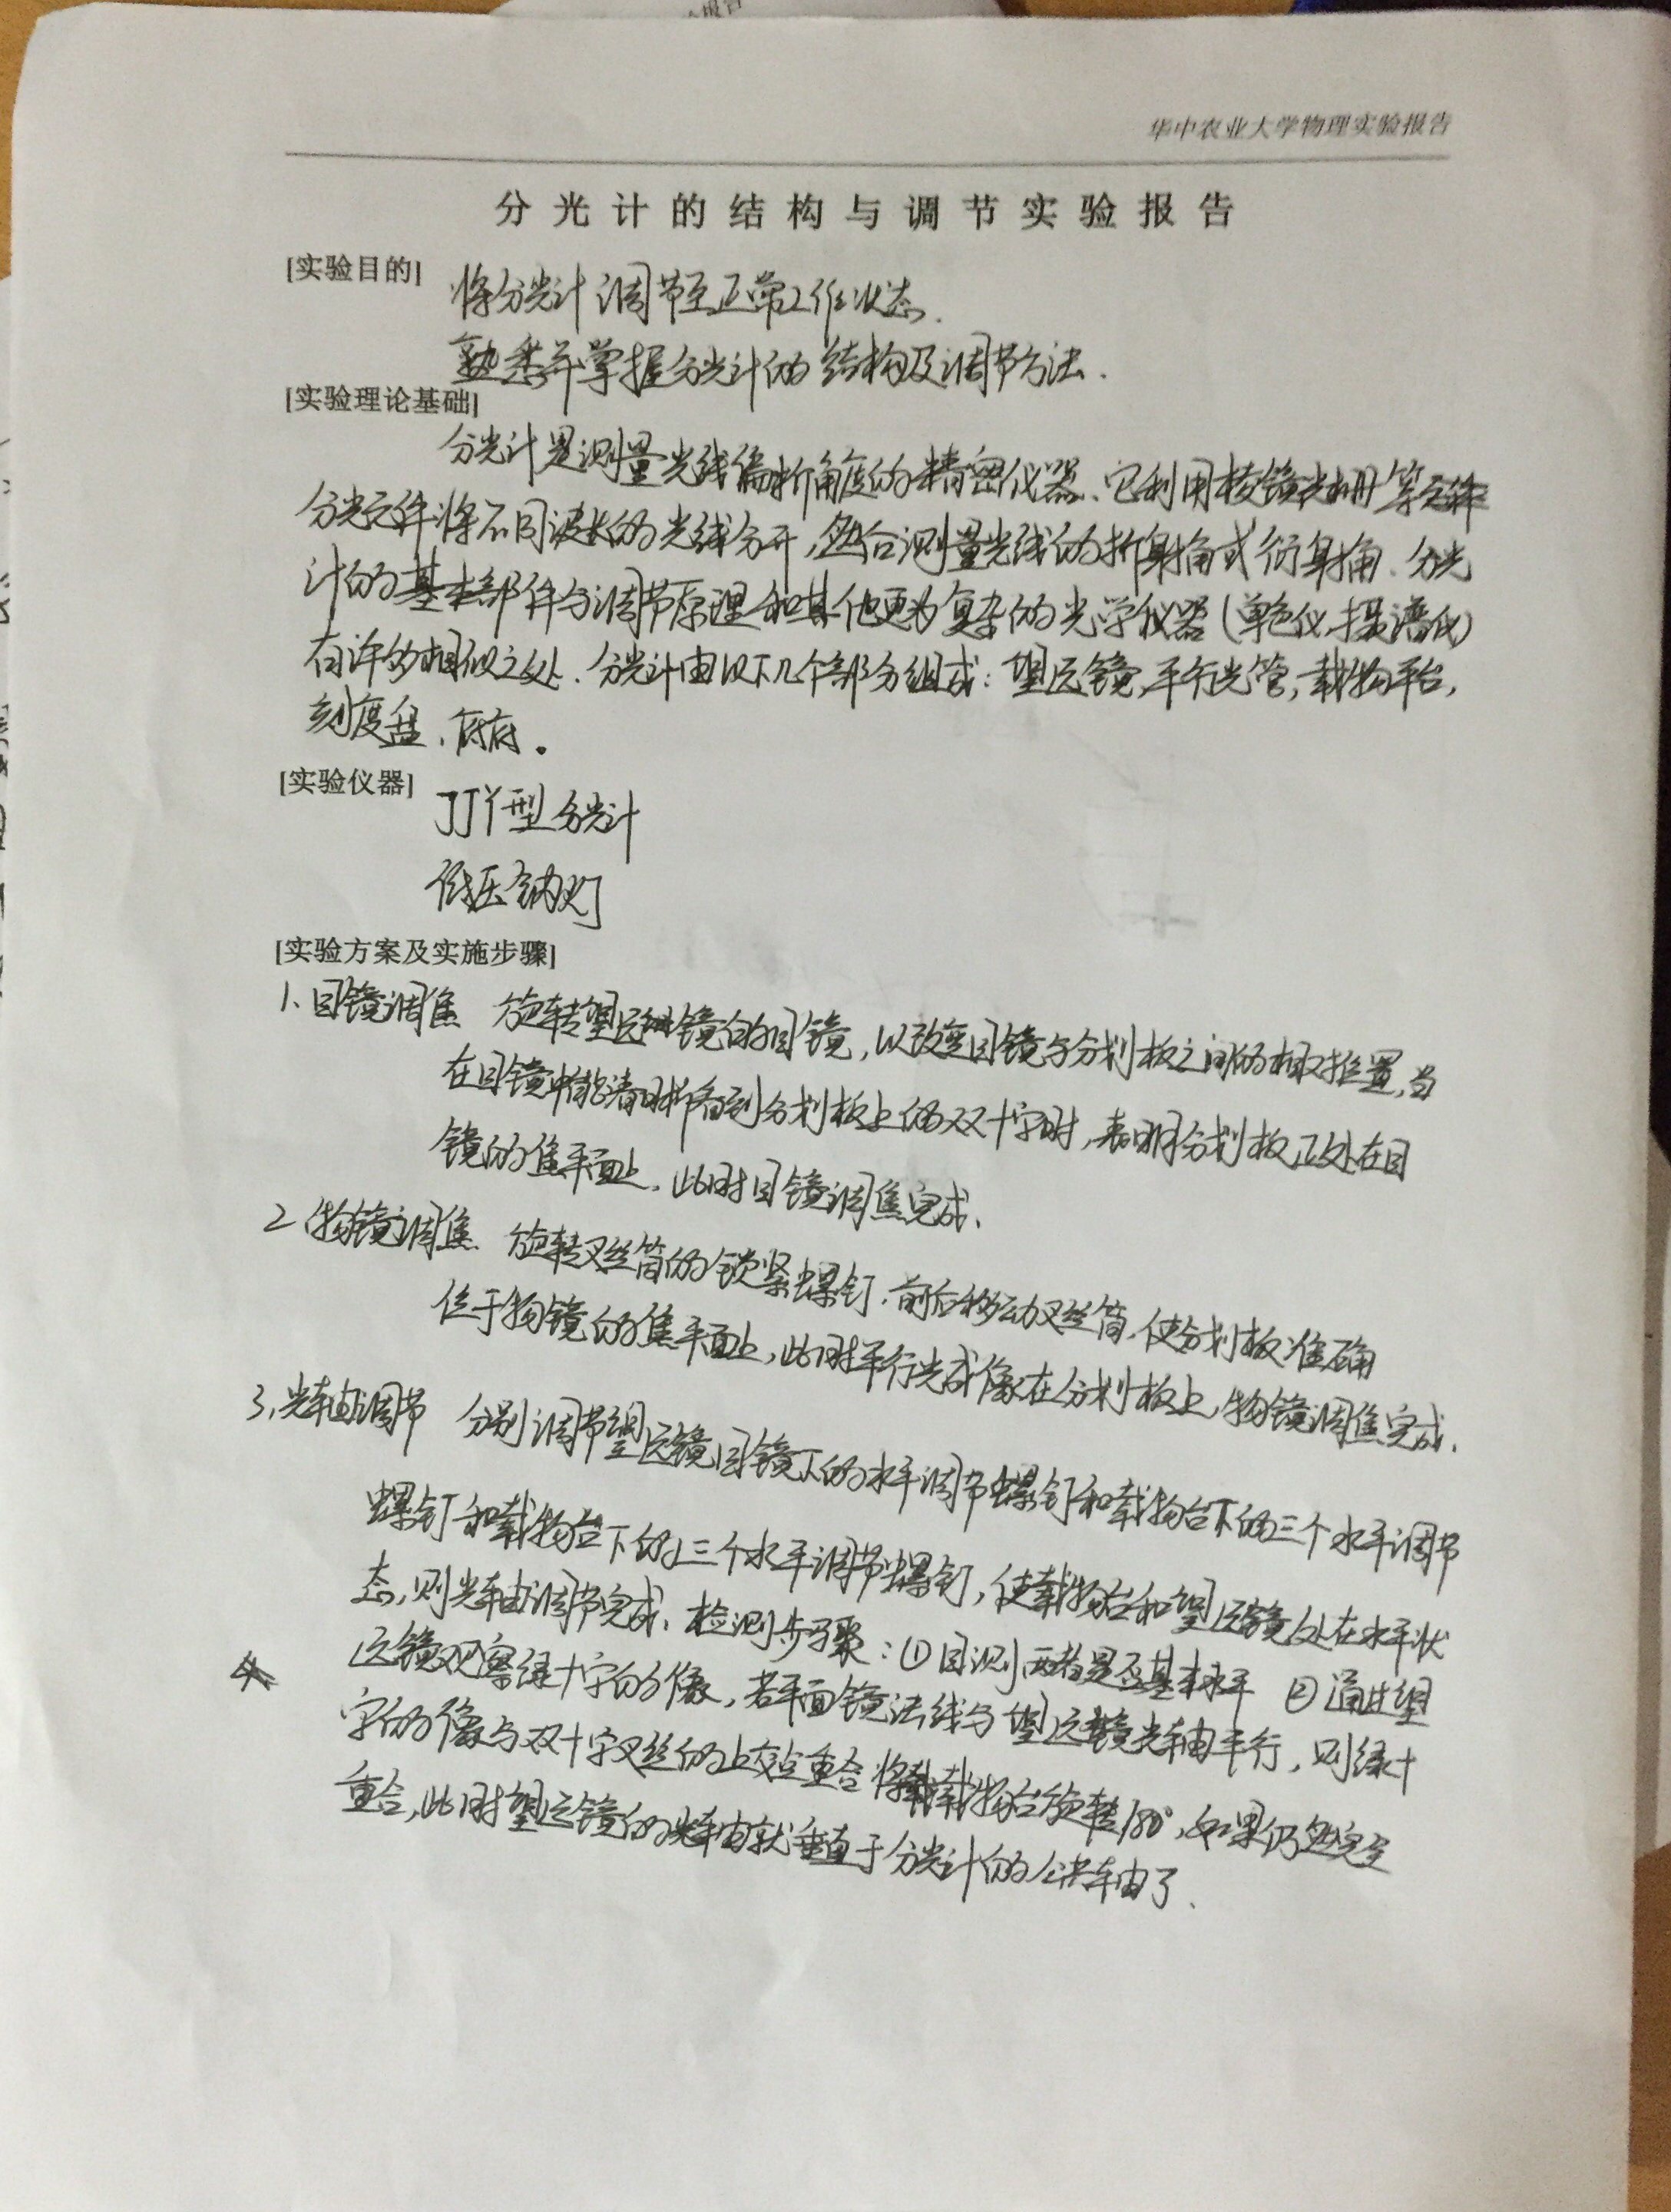 华中农业大学物理实验报告
分光计的结构与调节实验报告
[实验目的]
将分光计调节至正常工作状态.
熟悉并掌握分光计的结构及调节方法.
[实验理论基础]
分光计是测量光线偏折角度的精密仪器、它利用棱镜光栅等
分光元件将不同波长的光线分开,然后测量光线的折射角或衍射角.分光
计的基本部件与调节原理和其他更为复杂的光学仪器(单色仪,摄谱仪)
有许多相似之处.分光计由以下几个部分组成:望远镜,平行光管,载物平台,
刻度盘、底座。
[实验仪器]
JJY型分光计
低压钠灯
[实验方案及实施步骤]
1、目镜调焦 旋转望远镜的目镜,以改变目镜与分划板之间的相对位置,当
在目镜中能清晰看到分划板上的双十字时,表明分划板正处在目
镜的焦平面上,此时目镜调焦完成、
2、物镜调焦 旋转叉丝筒的锁紧螺钉.前后移动叉丝筒,使分划板准确
位于物镜的焦平面上,此时平行光成像在分划板上,物镜调焦完成、
3、光轴调节 分别调节望远镜目镜下的水平调节螺钉和载物台下的三个水平调节
螺钉和载物台下的三个水平调节螺钉,使载物台和望远镜处在水平状
态,则光轴调节完成、检测步骤:①目测两者是否基本水平 ②通过望
远镜观察绿十字的像,若平面镜法线与望远镜光轴平行,则绿十
字的像与双十字叉丝的上交点重合 将载物台旋转180°,如果仍然完全
重合,此时望远镜的光轴就垂直于分光计的公共轴了、